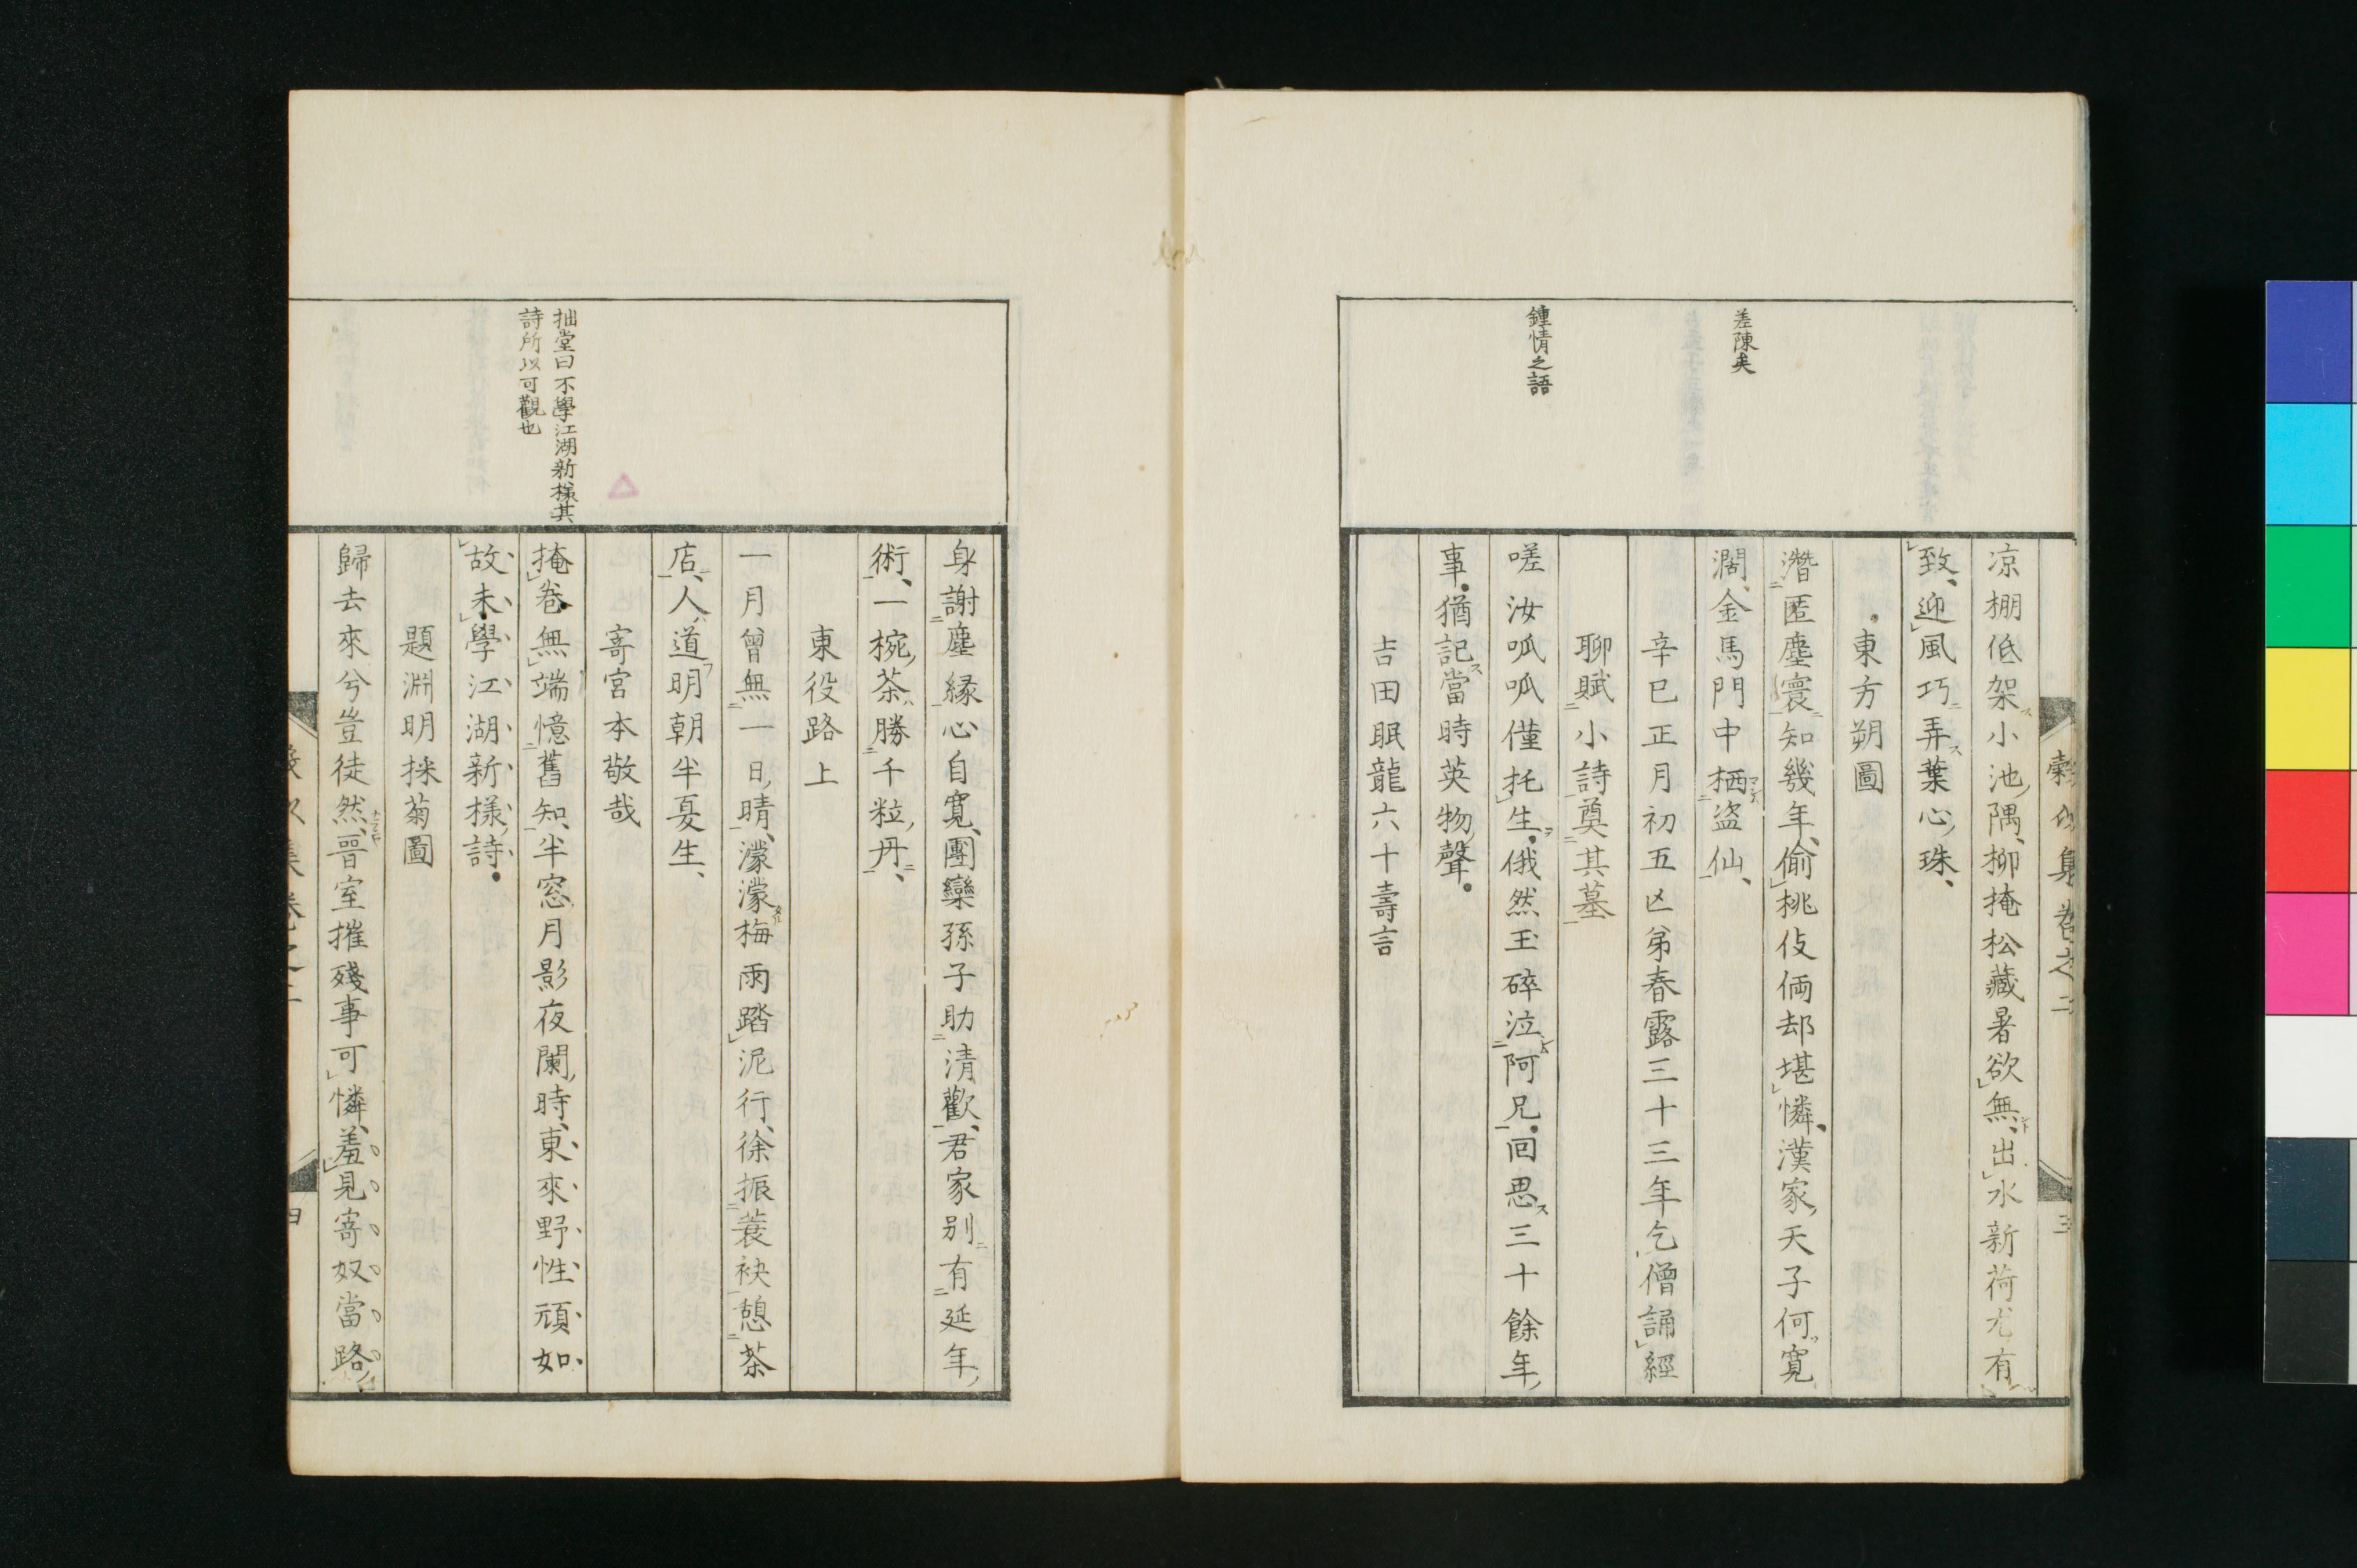 差陳矣
鍾情之語
凉棚低架小池隅、柳掩松藏暑欲無、出水新荷尤有
致、迎風巧弄葉心珠、
東方朔圖
潛匿塵寰知幾年、偷桃伎倆却堪憐、漢家天子何寛
濶、金馬門中栖盜仙、
辛巳正月初五亡弟春露三十三年乞僧誦經
聊賦小詩奠其墓
嗟汝呱呱僅托生、俄然玉碎泣阿兄、回思三十餘年
事、猶記當時英物聲。
吉田眠龍六十壽言
身謝塵緣心自寬、團欒孫子助清歡、君家別有延年
術、一椀茶勝千粒丹、
東役路上
一月曾無一日晴、濛濛梅雨踏泥行、徐振蓑袂憩茶
店、人道明朝半夏生、
寄宮本敬哉
掩卷無端憶舊知、半窓月影夜闌時、東來野性頑如
故、未學江湖新樣詩。
拙堂曰不學江湖新樣其
詩所以可觀也
題淵明採菊圖
歸去來兮豈徒然、晉室摧殘事可憐、羞見寄奴當路